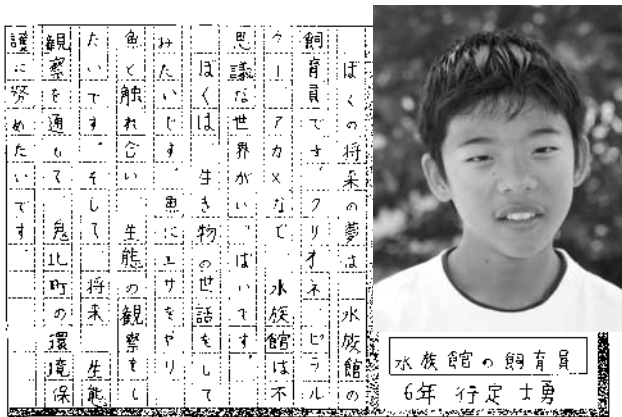 ぼくの将来の夢は、水族館の
飼育員です。クリオネ、ピラル
クー、アカメなど、水族館は不
思議な世界がいっぱいです。
ぼくは、生き物の世話をして
みたいです。魚にエサをやり、
魚と触れ合い、生態の観察をし
たいです。そして、将来、生態
観察を通して、鬼北町の環境保
護に努めたいです。
水族館の飼育員
6年 行定 士勇